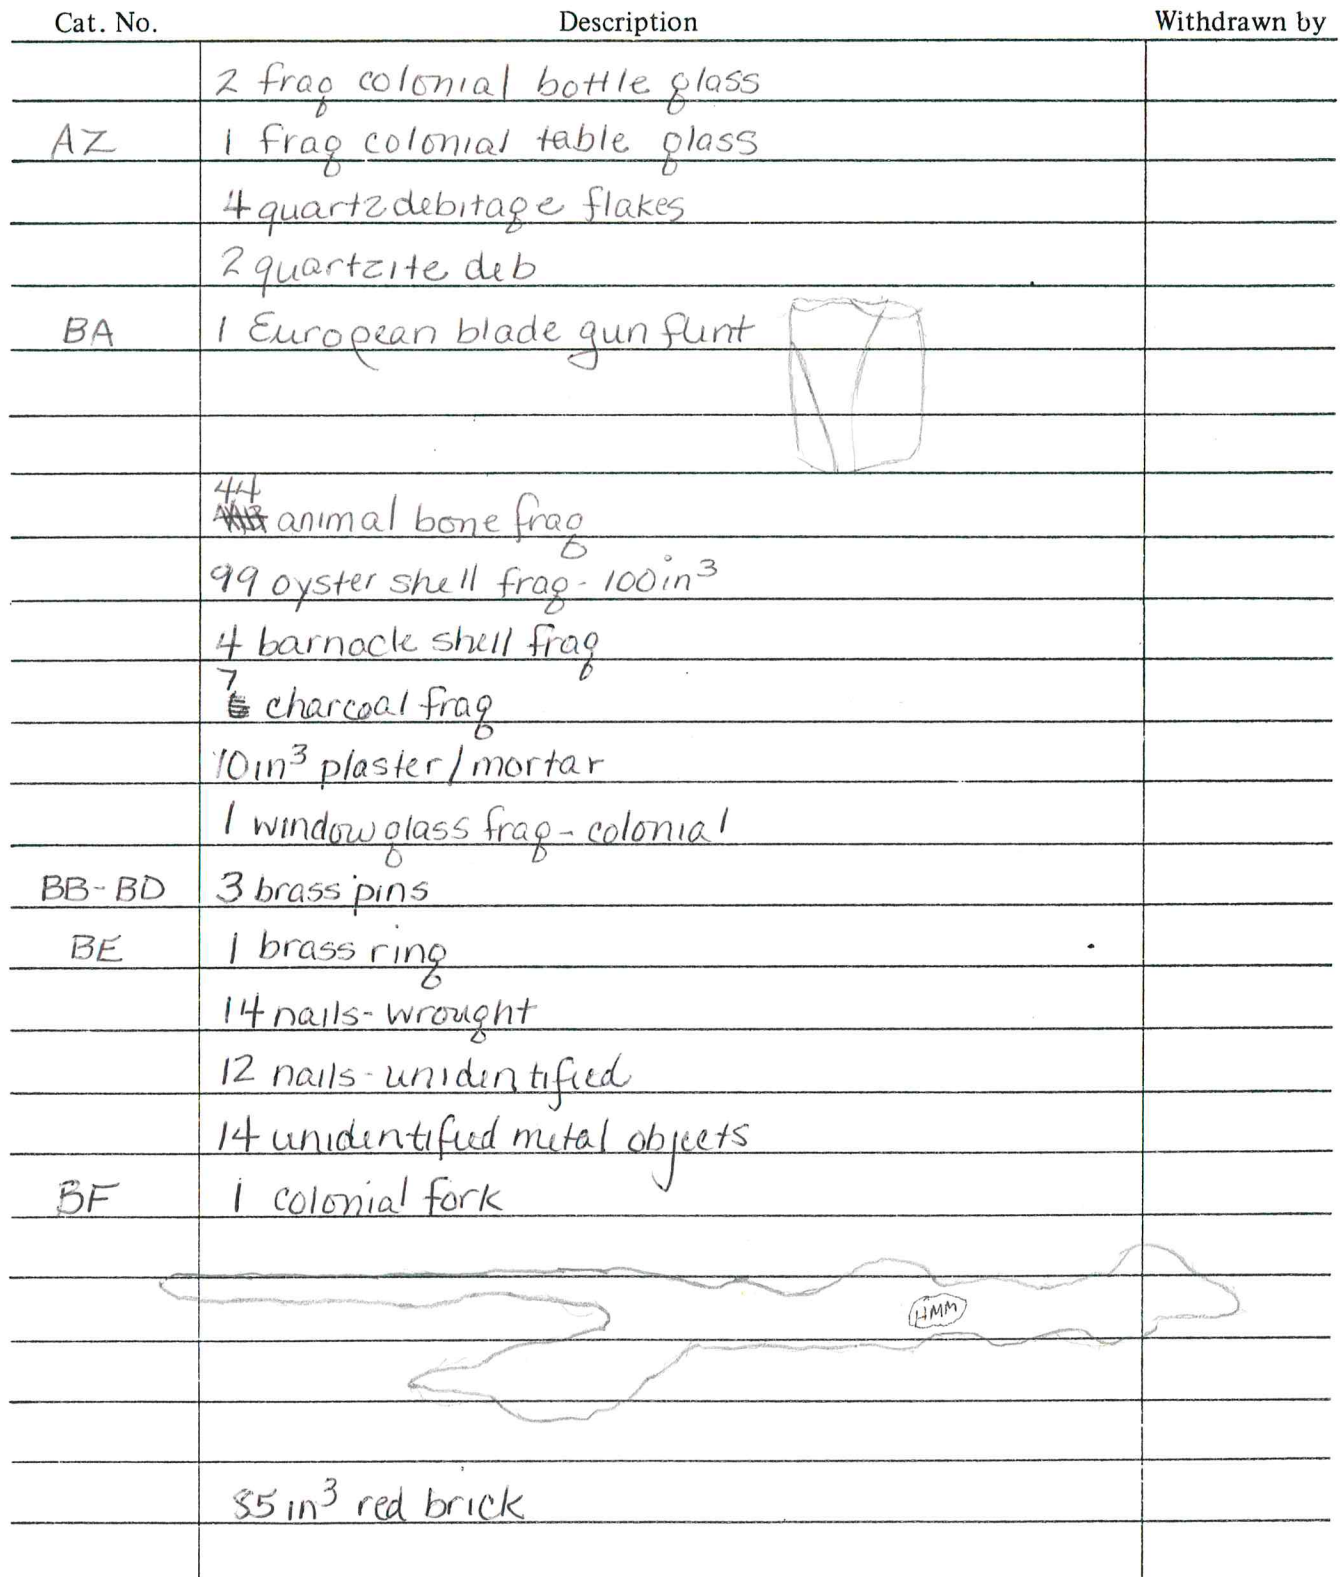 Cat. No. Description Withdrawn by
2 frag colonial bottle glass
AZ 1 frag colonial table glass
4 quartz debitage flakes
2 quartzite deb
BA 1 European blade gun flint
44
animal bone frag
99 oyster shell frag - 100in³
4 barnacle shell frag
7
charcoal frag
10in³ plaster/mortar
1 window glass frag - colonial
BB-BD 3 brass pins
BE 1 brass ring
14 nails - wrought
12 nails - unidentified
14 unidentified metal objects
BF 1 colonial fork
HMM
85in³ red brick